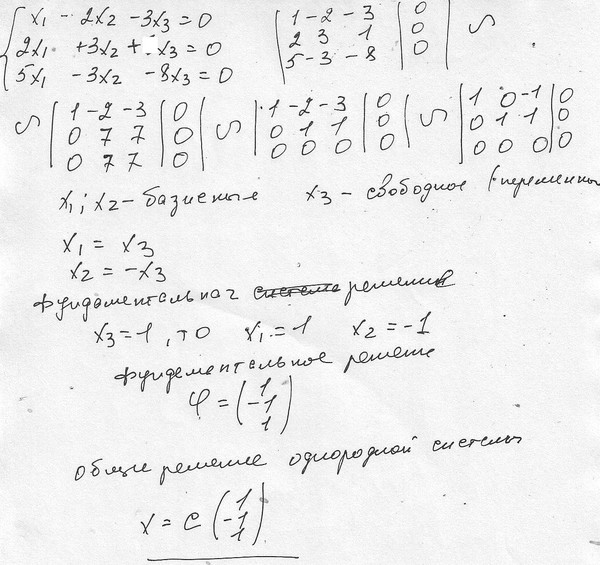 x₁ - 2x₂ - 3x₃ = 0
2x₁ + 3x₂ + x₃ = 0
5x₁ - 3x₂ - 8x₃ = 0
1 -2 -3 | 0
2 3 1 | 0
5 -3 -8 | 0
∽
∽ 1 -2 -3 | 0
0 7 7 | 0
0 7 7 | 0
∽ 1 -2 -3 | 0
0 1 1 | 0
0 0 0 | 0
∽ 1 0 -1 | 0
0 1 1 | 0
0 0 0 | 0
x₁; x₂ - базисные x₃ - свободное (переменны
x₁ = x₃
x₂ = -x₃
фундаментальная система решения
x₃ = 1, то x₁ = 1 x₂ = -1
фундементальное решение
φ = (1
-1
1)
общие решение однородной системы
x = c (1
-1
1)